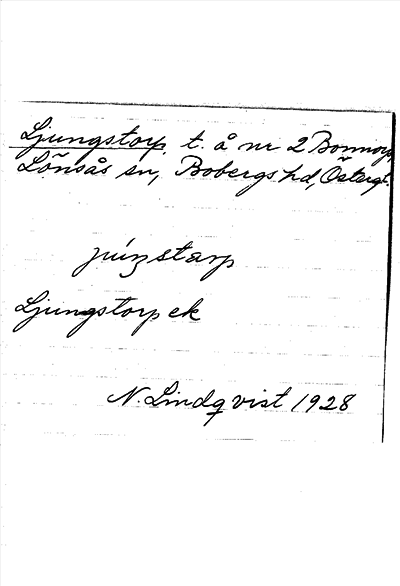 Ljungstorp, t. å nr 2 Bonnorp
Lönsås sn, Bobergs hd, Östergl.
júŋstarp
Ljungstorp ek
N. Lindqvist 1928